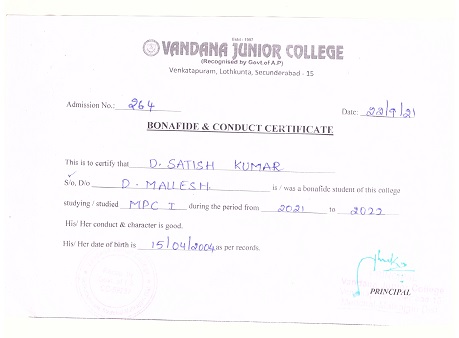 Estd : 1987
VANDANA JUNIOR COLLEGE
(Recognised by Govt of A.P)
Venkatapuram, Lothkunta, Secunderabad - 15
Admission No.: 264
Date: 22/9/21
BONAFIDE & CONDUCT CERTIFICATE
This is to certify that D. SATISH KUMAR
S/o, D/o D. MALLESH is / was a bonafide student of this college
studying / studied MPC I during the period from 2021 to 2022
His/ Her conduct & character is good.
His/ Her date of birth is 15/04/2004 as per records.
PRINCIPAL